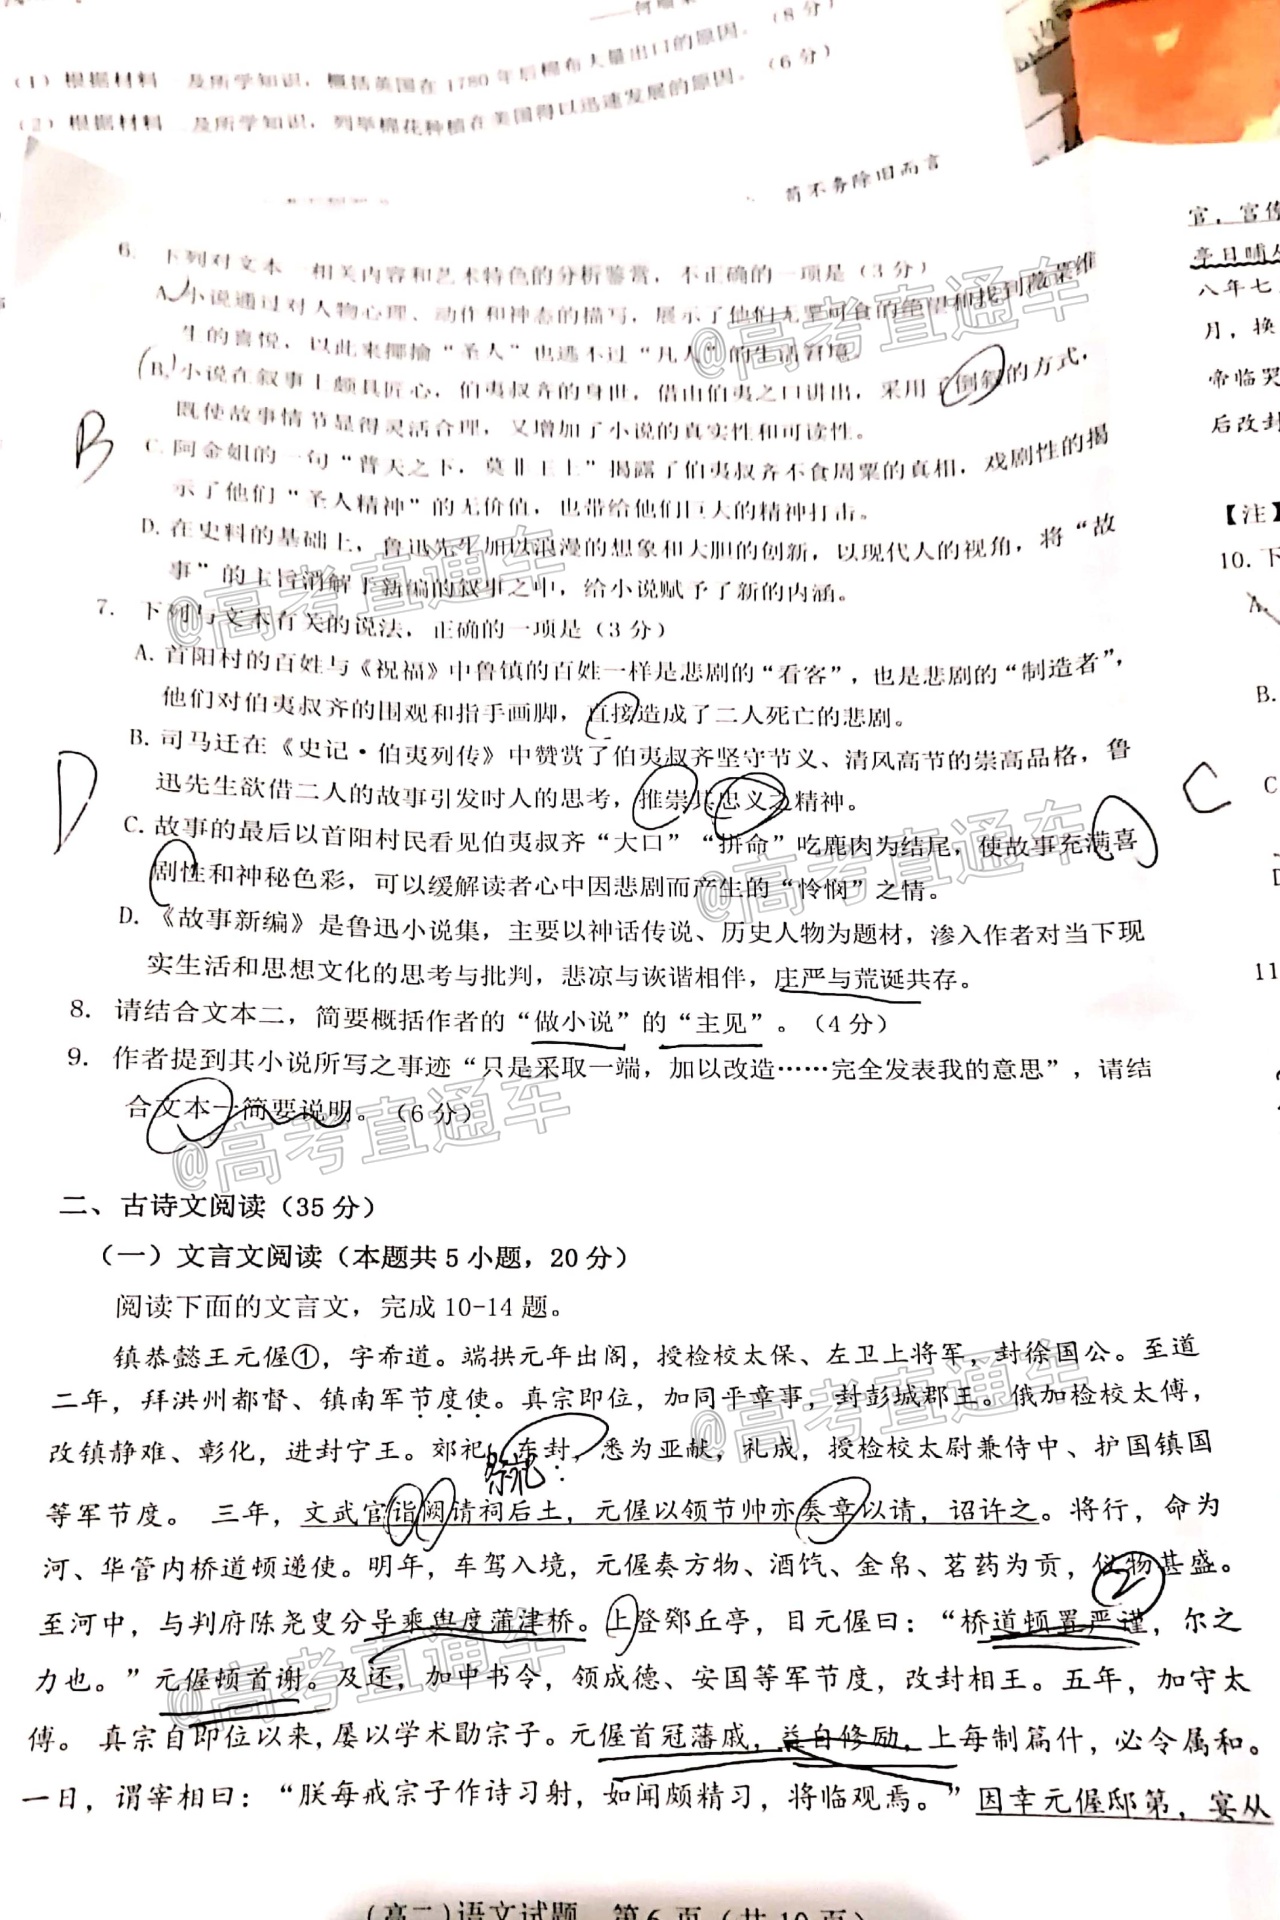 (1) 根据材料 及所学知识，概括英国在1780年后棉布大量出口的原因。(8分)
(2) 根据材料 及所学知识，列举棉花种植在美国得以迅速发展的原因。(6分)
苟不务除旧而言
6. 下列对文本一相关内容和艺术特色的分析鉴赏，不正确的一项是(3分)
A. 小说通过对人物心理、动作和神态的描写，展示了他们无里可食的绝望和找到薇菜维
生的喜悦，以此来揶揄“圣人”也逃不过“凡人”的生活窘境。
B. 小说在叙事上颇具匠心，伯夷叔齐的身世，借由伯夷之口讲出，采用了倒叙的方式，
既使故事情节显得灵活合理，又增加了小说的真实性和可读性。
B
C. 阿金姐的一句“普天之下，莫非王土”揭露了伯夷叔齐不食周粟的真相，戏剧性的揭
示了他们“圣人精神”的无价值，也带给他们巨大的精神打击。
D. 在史料的基础上，鲁迅先生加以浪漫的想象和大胆的创新，以现代人的视角，将“故
事”的主旨消解于新编的叙事之中，给小说赋予了新的内涵。
7. 下列与文本有关的说法，正确的一项是(3分)
A. 首阳村的百姓与《祝福》中鲁镇的百姓一样是悲剧的“看客”，也是悲剧的“制造者”，
他们对伯夷叔齐的围观和指手画脚，直接造成了二人死亡的悲剧。
B. 司马迁在《史记·伯夷列传》中赞赏了伯夷叔齐坚守节义、清风高节的崇高品格，鲁
迅先生欲借二人的故事引发时人的思考，推崇其忠义之精神。
D
C. 故事的最后以首阳村民看见伯夷叔齐“大口”“拼命”吃鹿肉为结尾，使故事充满喜
剧性和神秘色彩，可以缓解读者心中因悲剧而产生的“怜悯”之情。
D. 《故事新编》是鲁迅小说集，主要以神话传说、历史人物为题材，渗入作者对当下现
实生活和思想文化的思考与批判，悲凉与诙谐相伴，庄严与荒诞共存。
8. 请结合文本二，简要概括作者的“做小说”的“主见”。(4分)
9. 作者提到其小说所写之事迹“只是采取一端，加以改造……完全发表我的意思”，请结
合文本一简要说明。(6分)
二、古诗文阅读(35分)
(一) 文言文阅读(本题共5小题，20分)
阅读下面的文言文，完成10-14题。
镇恭懿王元偓①，字希道。端拱元年出阁，授检校太保、左卫上将军，封徐国公。至道
二年，拜洪州都督、镇南军节度使。真宗即位，加同平章事，封彭城郡王。俄加检校太傅，
改镇静难、彰化，进封宁王。郊祀、东封，悉为亚献，礼成，授检校太尉兼侍中、护国镇国
祭祀
等军节度。 三年，文武官诣阙请祠后土，元偓以领节帅亦奏章以请，诏许之。将行，命为
河、华管内桥道顿递使。明年，车驾入境，元偓奏方物、酒饩、金帛、茗药为贡，仪物甚盛。
②
至河中，与判府陈尧叟分导乘舆度蒲津桥。上登鄈丘亭，目元偓曰：“桥道顿置严谨，尔之
力也。”元偓顿首谢。及还，加中书令，领成德、安国等军节度，改封相王。五年，加守太
傅。 真宗自即位以来，屡以学术勖宗子。元偓首冠藩戚，益自修励，上每制篇什，必令属和。
一日，谓宰相曰：“朕每戒宗子作诗习射，如闻颇精习，将临观焉。”因幸元偓邸第，宴从
(高二)语文试题 第6页(共10页)
官，宣传
亭日晡
八年七
月，换
帝临哭
后改封
【注】
10. 下
A.
B.
C
C
D
11
@高考直通车
@高考直通车
@高考直通车
@高考直通车
@高考直通车
@高考直通车